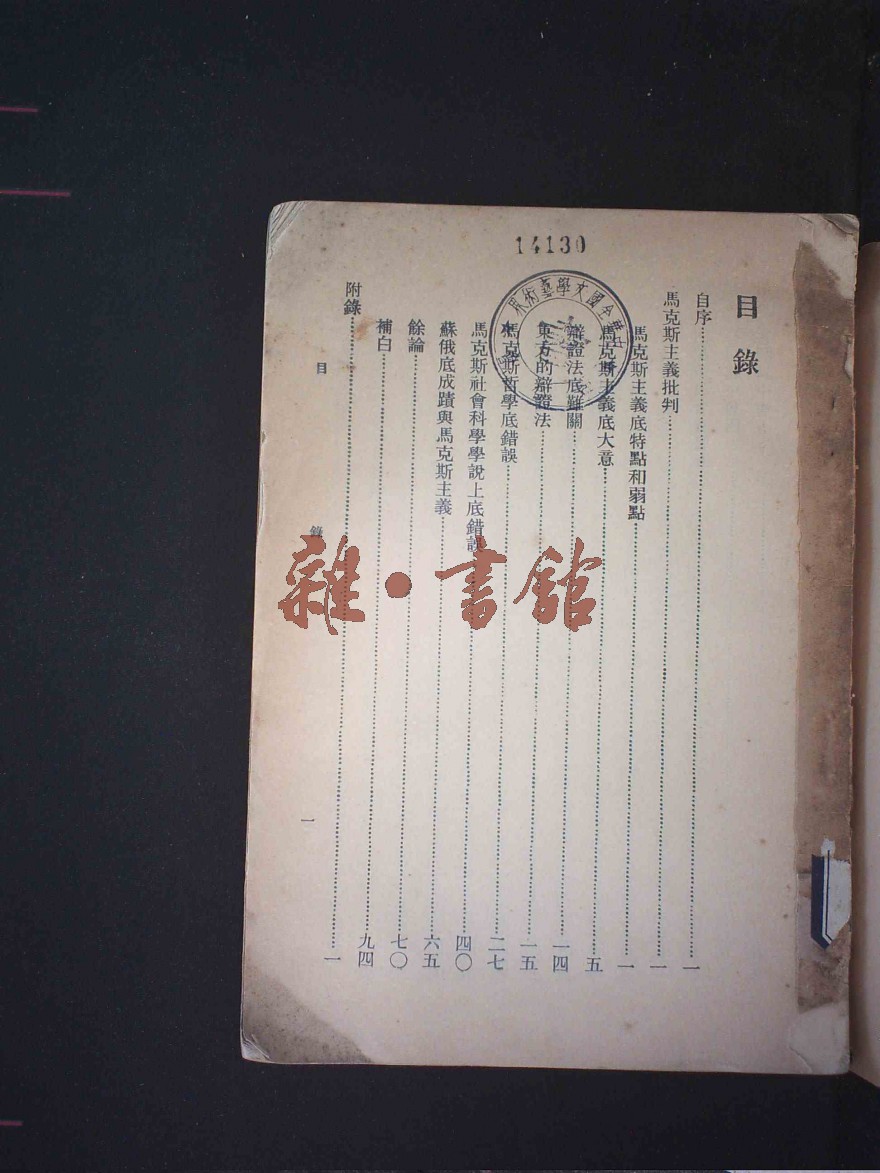 14130
目錄
自序……一
馬克斯主義批判……一
馬克斯主義底特點和弱點……一
馬克斯主義底大意……五
辯證法底難關……一四
東方的辯證法……一五
馬克斯哲學底錯誤……二七
馬克斯社會科學學說上底錯誤……四〇
蘇俄底成蹟與馬克斯主義……六五
餘論……七〇
補白……九四
附錄……一
目錄
一
雜·書館